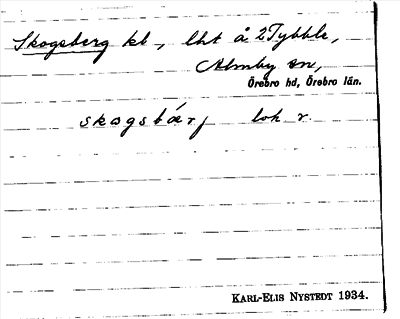 Skogsberg kl, lht å 2 Tybble,
Almby sn,
Örebro hd, Örebro län.
skogsbárj lok r.
KARL-ELIS NYSTEDT 1934.